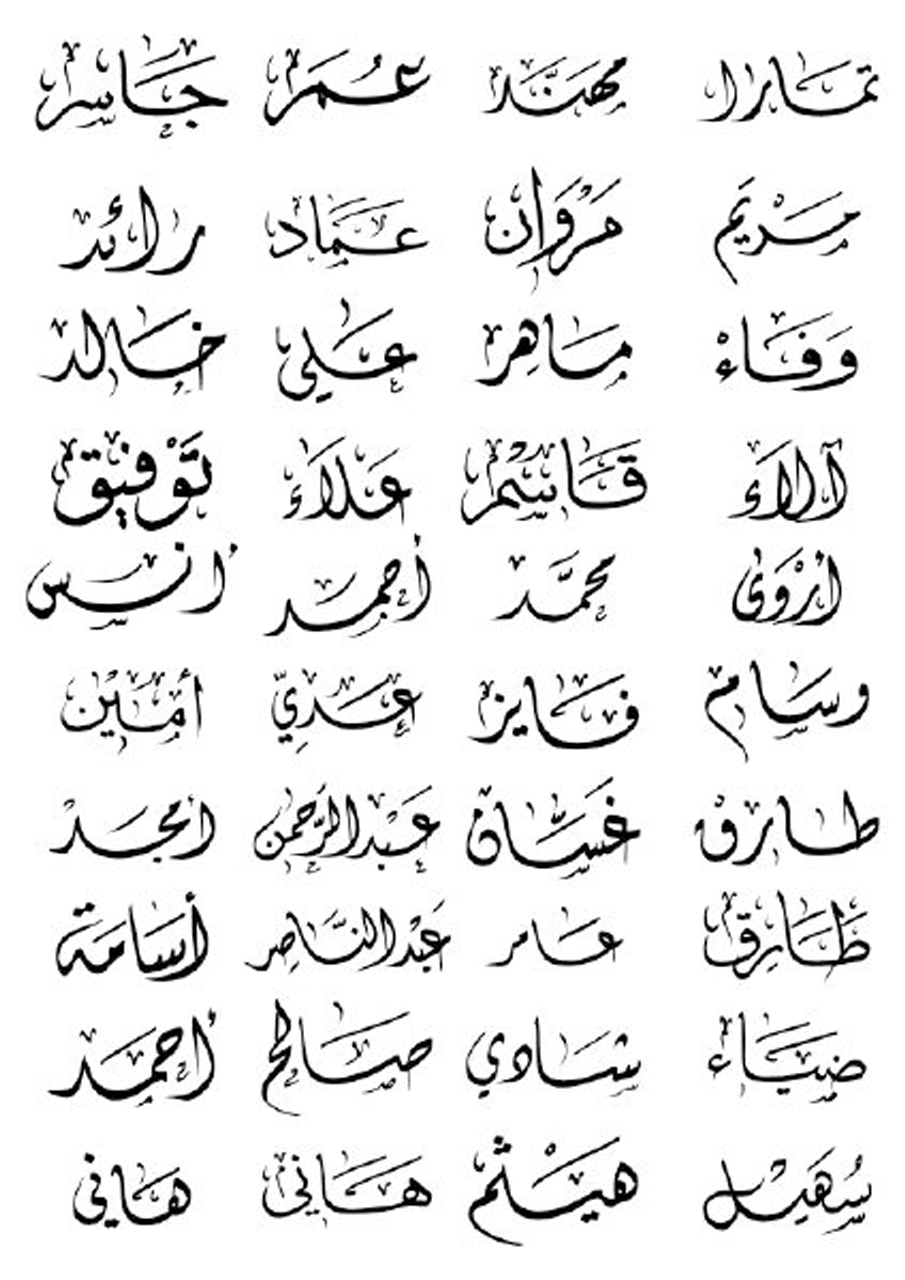 تمارا مهنَّد عُمَر جَاسر
مَرْيَم مَرْوَان عَمَاد رائد
وَفَاءْ مَاهِر عَلي خَالد
آلاَء قَاسْم عَلاَء تَوْفيق
أرْوَى محمَّد أحمَد أنس
وسَام فَايز عَدِيّ أمَيْن
طارق غَسَّان عَبْدالرَّحمن أمجَدْ
طَارِق عَامر عَبْدالنَّاصِر أسَامَة
ضيَاء شادي صَالح أحمَد
سُهَيْل هَيْثم هَاني هَاني